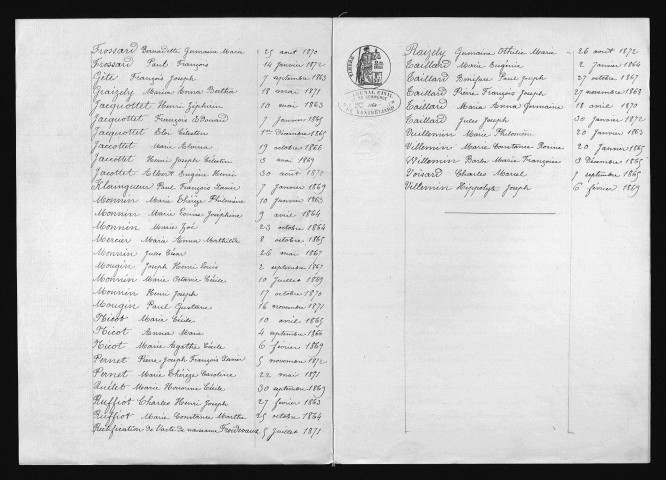 Frossard Bernadette Germaine Maria 25 aout 1870
Frossard Paul François 14 janvier 1872
Gête François Joseph 7 septembre 1863
Graizely Marina Anna Bertha 18 mai 1871
Jacquottet Henri Zéphirin 10 mai 1863
Jacquottet François Edouard 7 janvier 1865
Jacquottet Célestin 1er Décembre 1865
Jacottet Marie 19 octobre 1866
Jacottet Henri Joseph Célestin 3 mai 1869
Jacottet Albert Eugène Henri 30 août
Paul François Xavier 7 janvier 1869
Monnin Marie Thérèze Philomène 10 janvier 1863
Monnin Marie Louise Joséphine 9 avril 1864
Monnin Marie Zoé 23 octobre 1864
Mercier Maria Anna Mathilde 8 octobre 1865
Monnin Jules César 26 mai 1867
Mougin Joseph Henri Louis 2 septembre 1867
Monnin Marie Octavie Cécile 10 juillet 1869
Monnin Henri Joseph 17 octobre 1870
Mougin Paul Gustave 16 novembre 1871
Nicot Maria Cécile 10 avril 1865
Nicot Anna Maria 4 septembre 1866
Nicot Marie Agathe Cécile 6 février 1869
Pernet Pierre Joseph François Xavier 5 novembre 1872
Pernet Marie Thérèze Caroline 22 mai 1871
Marie Honorine Cécile 30 septembre 1869
Ruffiot Charles Henri Joseph 27 février 1863
Ruffiot Marie Constance Martha 25 octobre 1864
Rectification de l'acte de naissance Froidevaux 5 juillet 1871
TRIBUNAL CIVIL
DE COMMERCE
DE MONTBELIARD
Germaine Othilie Marie 26 août 1872
Taillard Marie Eugénie 2 janvier 1864
Taillard Boniface Paul Joseph 27 octobre 1867
Taillard Pierre François Joseph 27 novembre 1868
Taillard Maria Anna Germaine 18 avril 1870
Taillard Jules Joseph 30 janvier 1872
Vuillemin Marie Philomène 20 janvier 1863
Villemin Marie Constance 20 janvier 1865
Willemin Marie Françoise 3 Décembre 1865
Voisard Charles Marcel 7 septembre 1865
Villemin Hippolyte Joseph 6 février 1869